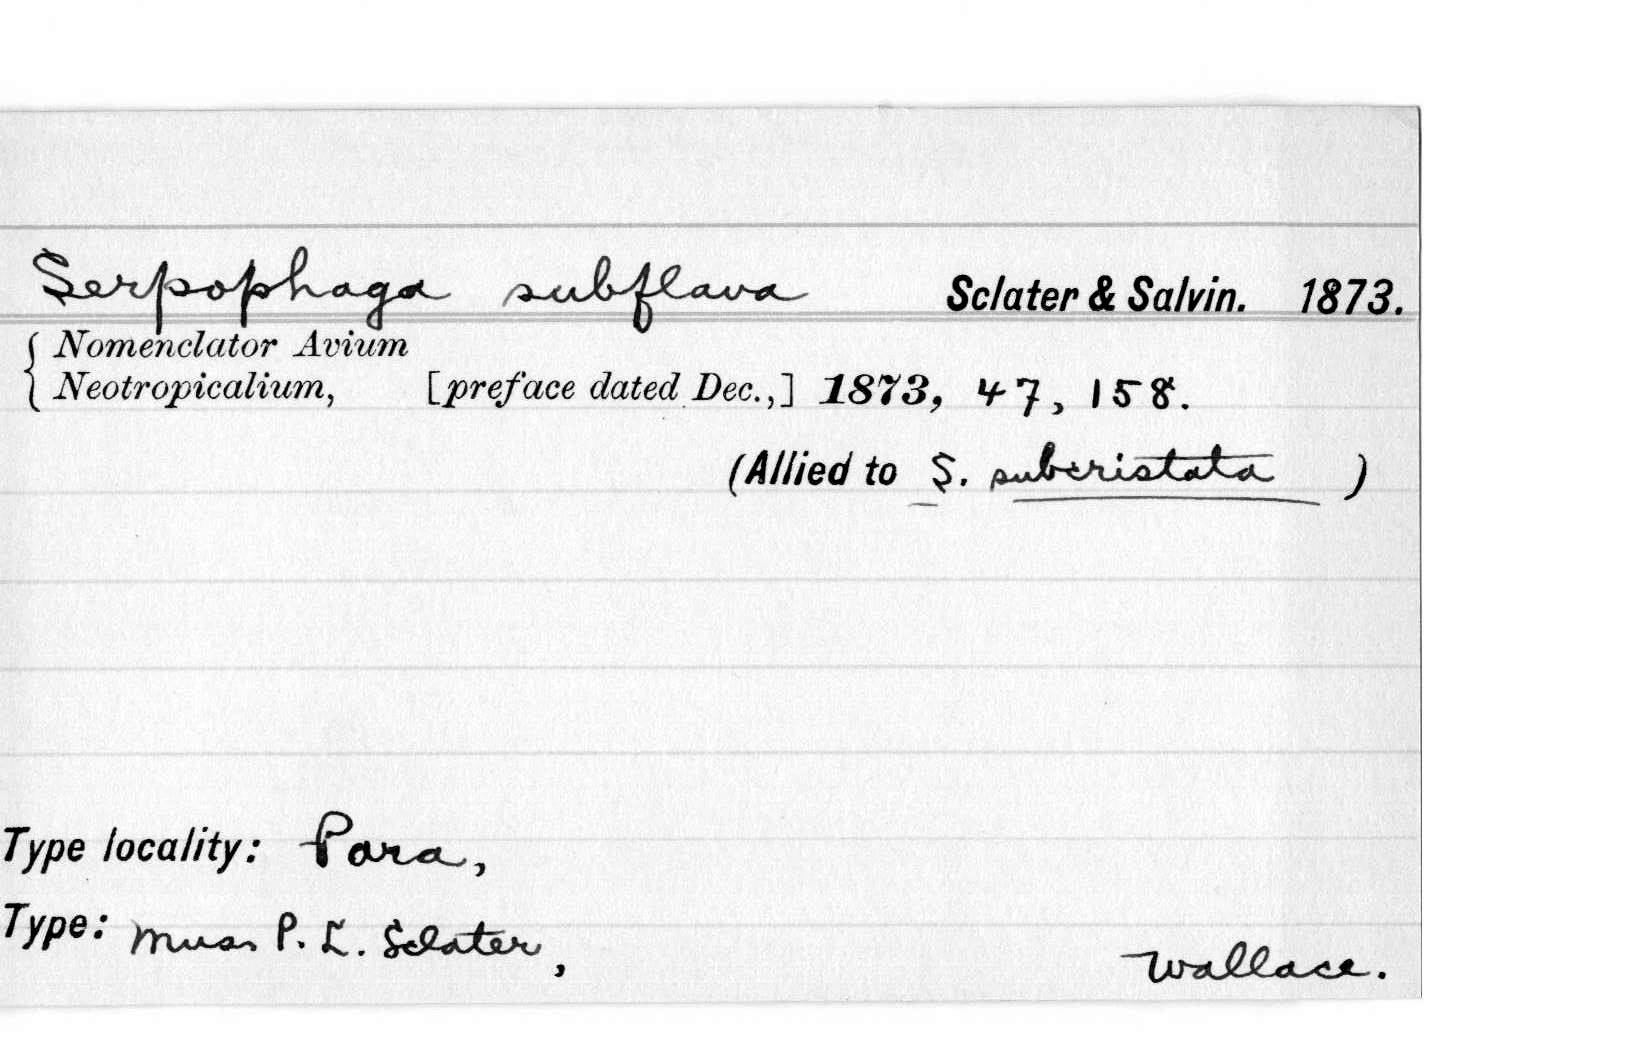 Serpophaga subflava Sclater & Salvin. 1873.
{ Nomenclator Avium
Neotropicalium, [preface dated Dec.,] 1873, 47, 158.
(Allied to S. subcristata )
Type locality: Para,
Type: Mus. P. L. Sclater,
Wallace.